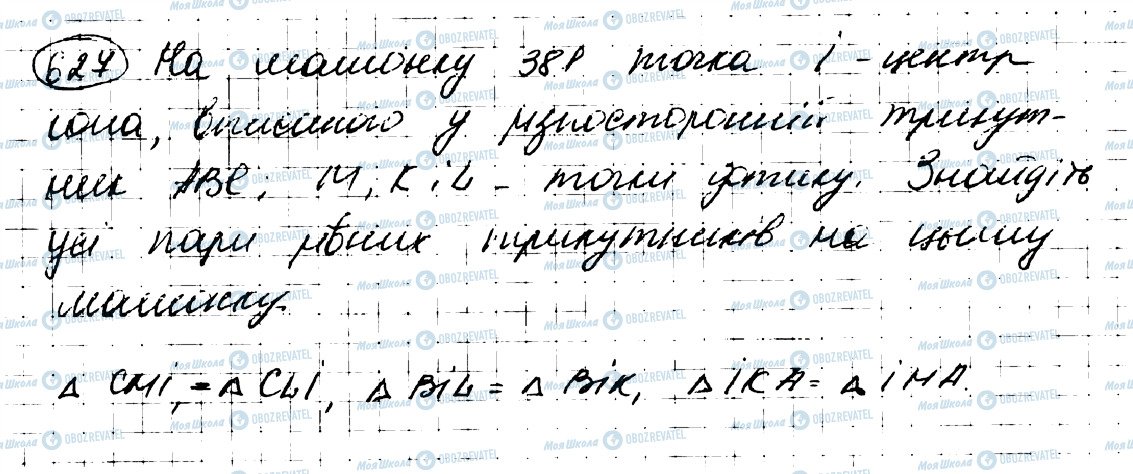 627 На малюнку 381 точка І - центр
кола, вписаного у різносторонній трикут-
ник АВС; М, К і L - точки дотику. Знайдіть
усі пари рівних трикутників на цьому
малюнку.
Δ CMI = Δ CLI, Δ BIL = Δ BIK, Δ IKA = Δ IMA.